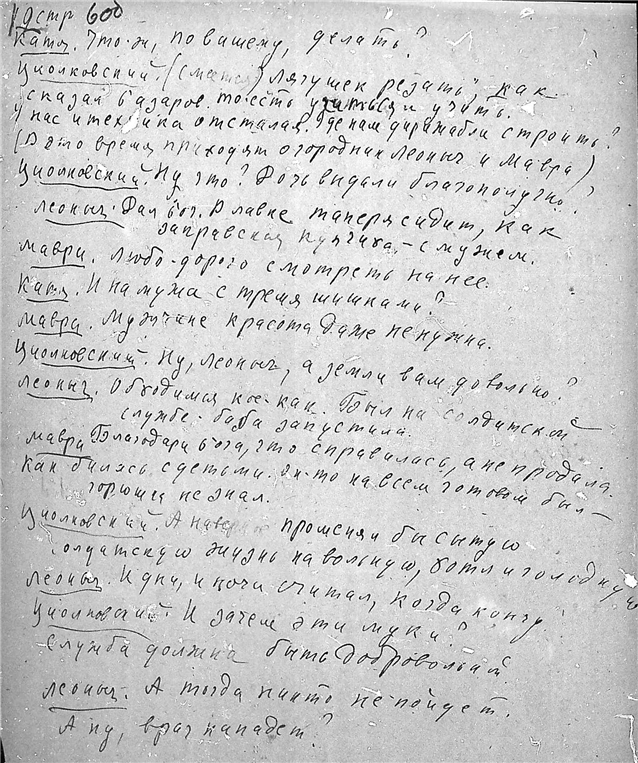 стр 60б
Катя. Что-ж, по вашему, делать?
Циолковский. (смеется) "Лягушек резать", как
сказал Базаров. То есть учиться и учить.
У нас и техника отсталая. Где нам дирижабли строить?
(В это время приходят огородник Леоныч и Мавра)
Циолковский. Ну что? Дочь выдали благополучно?
Леоныч. Дал бог. В лавке таперя сидит, как
заправская купчиха,- с мужем.
Мавра. Любо-дорого смотреть на нее.
Катя. И на мужа с тремя шишками?
Мавра. Мужчине красота даже не нужна.
Циолковский. Ну, Леоныч, а земли вам довольно?
Леоныч. Обходимся кое-как. Был на солдатской
службе - баба запустила.
Мавра Благодари бога, что справилась, а не продала.
Как билась с детьми. Он-то на всем готовом был -
горюшка не знал.
Циолковский. А наверное променял бы сытую
солдатскую жизнь на вольную, хотя и голодную
Леоныч. И дни, и ночи считал, когда кончу
Циолковский. И зачем эти муки?
Служба должна быть добровольной.
Леоныч. А тогда никто не пойдет.
А ну, враг нападет?